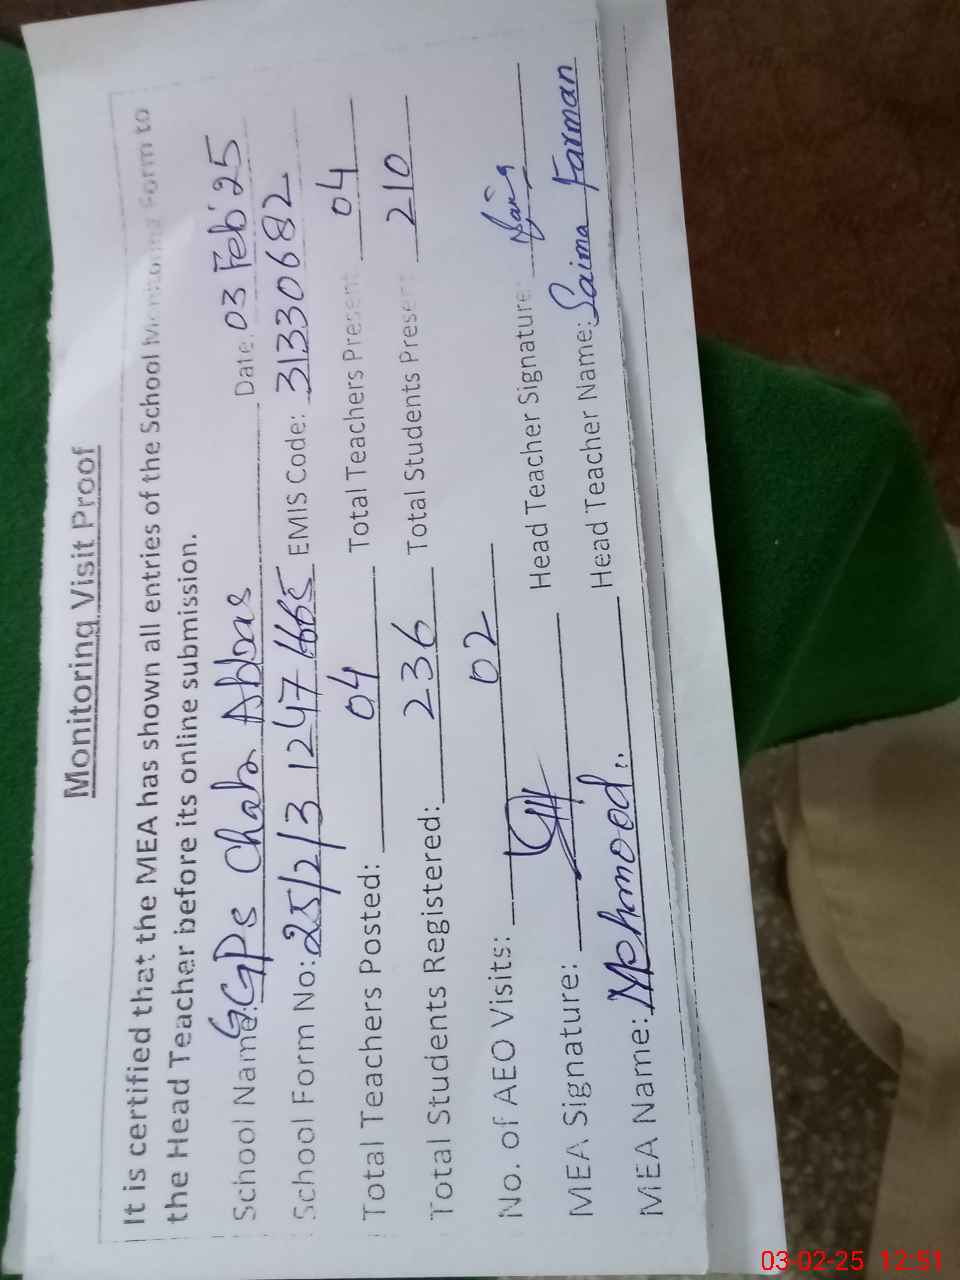 Monitoring Visit Proof
It is certified that the MEA has shown all entries of the School Monitoring Form to
the Head Teacher before its online submission.
School Name: GGPS Chaha Abbas Date: 03 Feb'25
School Form No: 25/2/3 1247 EMIS Code: 31330682
Total Teachers Posted: 04 Total Teachers Present 04
Total Students Registered: 236 Total Students Present 210
No. of AEO Visits: 02
MEA Signature: Head Teacher Signature:
MEA Name: Mehmood Head Teacher Name: Saima Farman
03-02-25 12:51